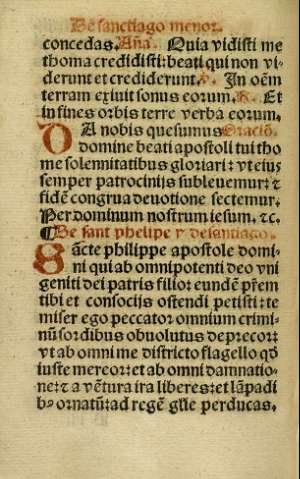 De sanctiago menor.
concedas. Aña. Quia vidisti me
thoma credidisti: beati qui non vi-
derunt et crediderunt. ℣. In oēm
terram exiuit sonus eorum. ℟. Et
in fines orbis terre verba eorum.
DA nobis quesumus Oraciō.
domine beati apostoli tui tho
me solennitatibus gloriari: vt eius
semper patrocinijs subleuemur: ⁊
fidē congrua deuotione sectemur.
Per dominum nostrum iesum. ⁊c.
¶ De sant phelipe y de santiago.
Sācte philippe apostole domi-
ni qui ab omnipotenti deo vni
geniti dei patris filio: eundē p̄em
tibi et consocijs ostendi petisti: te
miser ego peccator omnium crimi-
nū sordibus obuolutus deprecor:
vt ab omni me districto flagello qd̄
iuste mereor: et ab omni damnatio-
ne: ⁊ a vētura ira liberes: et lāpadi
bꝰ ornatū: ad regē glīe perducas.